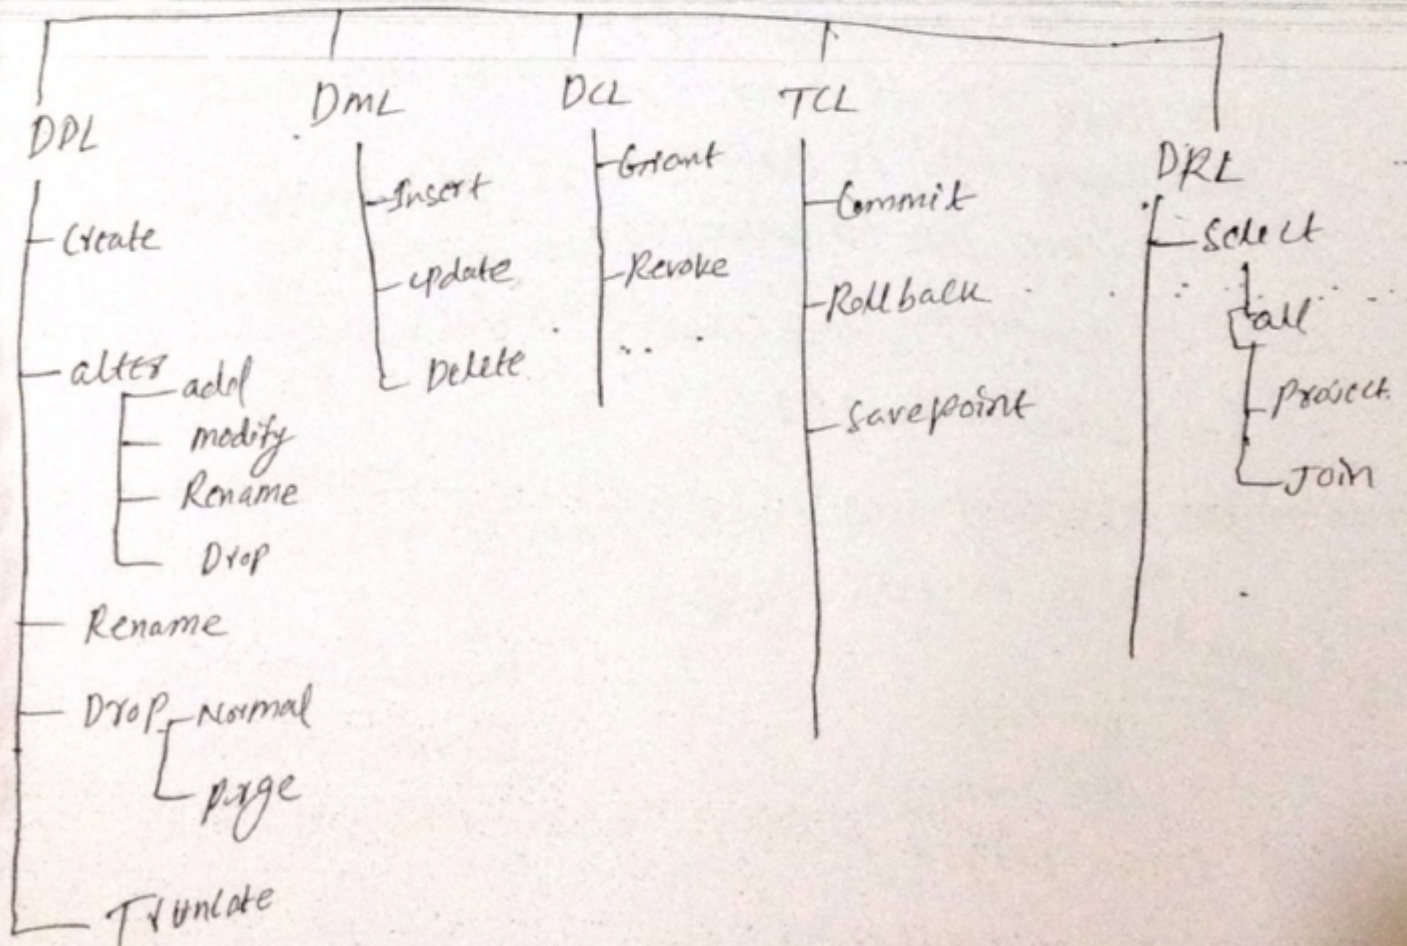 DDL
Create
alter
add
modify
Rename
Drop
Rename
Drop
Normal
purge
Truncate
DML
Insert
update
Delete
DCL
Grant
Revoke
TCL
Commit
Rollback
Savepoint
DRL
Select
all
Project
Join